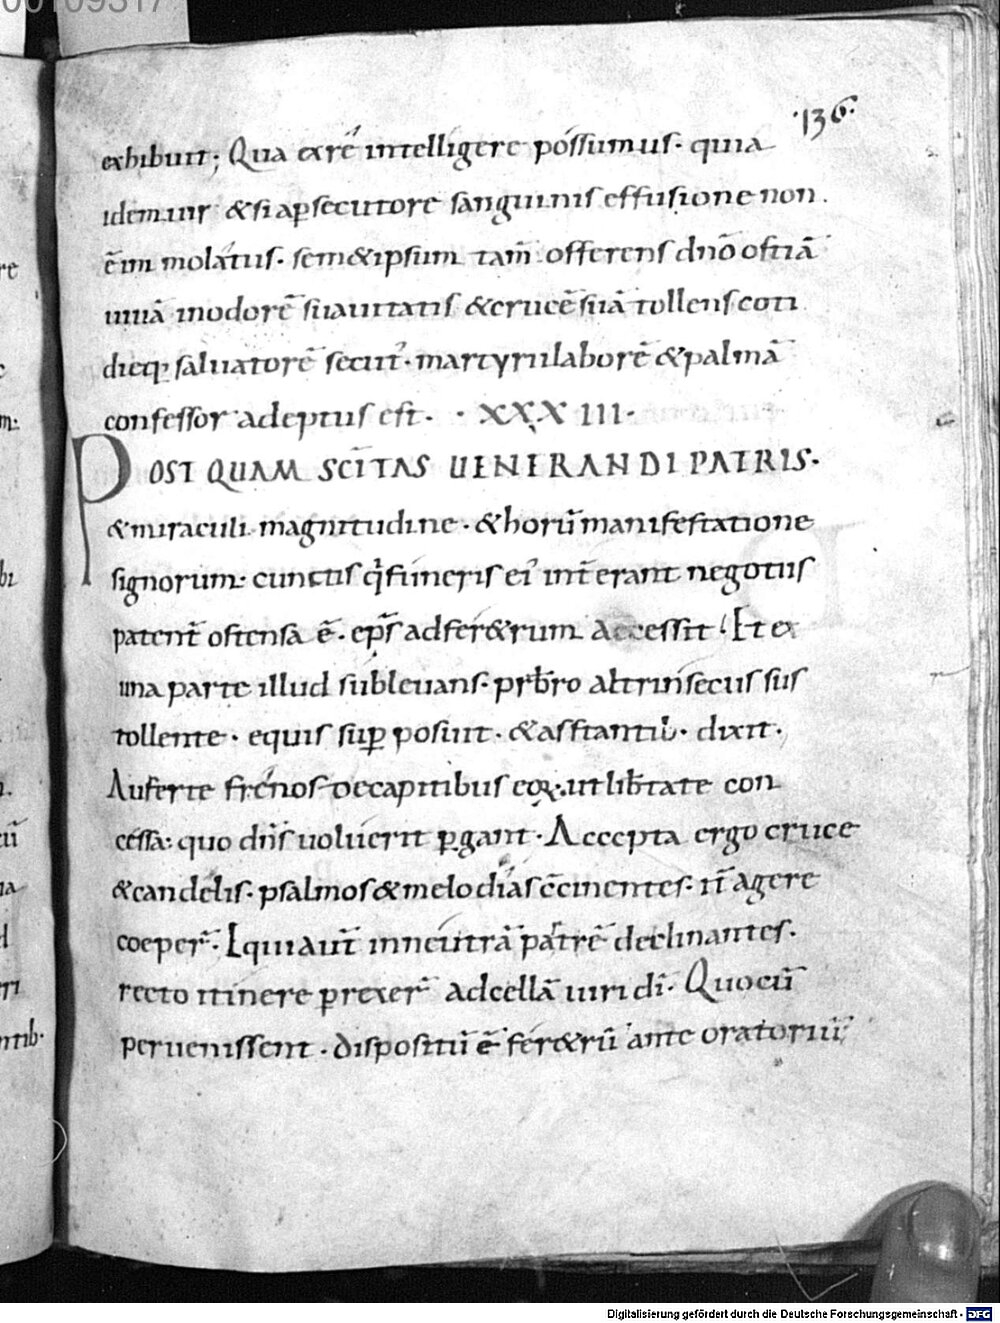 00109317
·136·
exhibuit; Qua ex rē intelligere possumus· quia
idem uir &si apsecutore sanguinis effusione non
ēim molatus· sem&ipsum tam̄ offerens dn̄o ostiā
uiuā inodorē suauitatis &crucē suā tollens coti
dieq; saluatorē secut᾽· martyrii laborē &palmā
confessor adeptus est· · XXXIII·
POST QUAM SC̄ITAS UENERANDI PATRIS·
&miraculi magnitudine· &horū manifestatione
signorum· cunctis q̇ funeris ei᾽ int̄erant negotiis
patent̄ ostensa ē· ep̄s adfer&rum accessit· Et ex
una parte illud subleuans· prb̄ro altrinsecus sus
tollente· equis sup posuit· &asstantib᾽· dixit·
Auferte frenos decapitibus eoꝝ· ut lib̄tate con
cessa· quo dn̄s uoluerit pgant· Accepta ergo cruce
&candelis· psalmos &melodias c̄cinentes· it̄ agere
coeper̄· Equi aut̄ inneutrā partē declinantes·
recto itinere prexer̄ adcellā uiri dī· Quocū
peruenissent· dispositū ē fer&rū ante oratoriū
Digitalisierung gefördert durch die Deutsche Forschungsgemeinschaft - DFG